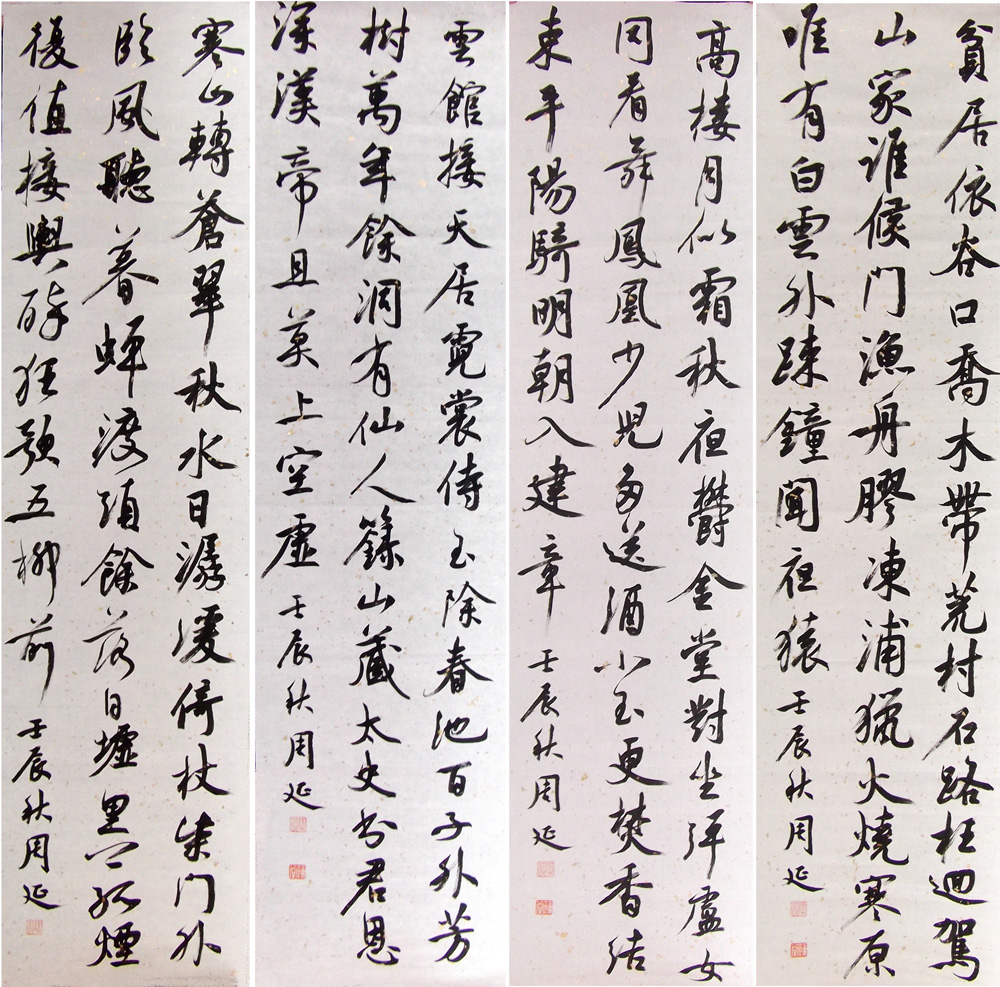 貧居依谷口喬木帶荒村石路枉迴駕
山家誰候門漁舟膠凍浦獵火燒寒原
唯有白雲外疎鐘聞夜猿壬辰秋周延
高樓月似霜秋夜鬱金堂對坐彈盧女
同看舞鳳凰少児多送酒小玉更焚香結
束平陽騎明朝入建章壬辰秋周延
雲館接天居霓裳侍玉除春池百子外芳
樹萬年餘洞有仙人籙山藏太史書君恩
深漢帝且莫上空虛壬辰秋周延
寒山轉蒼翠秋水日潺湲倚杖柴门外
臨風聽暮蟬渡頭餘落日墟里上孤煙
復值接輿醉狂歌五柳前壬辰秋周延